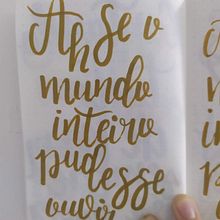 Ah se o
mundo
inteiro
pudesse
ouvir